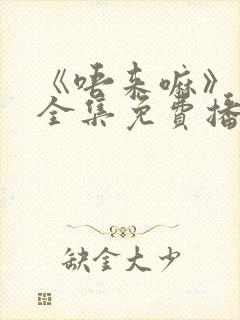 《唔来嘛》
全集免费播
缺金大少